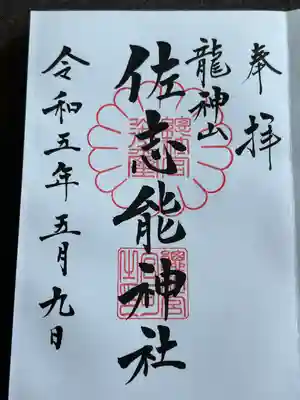 奉拝
龍神山
佐志能神社
令和五年五月九日